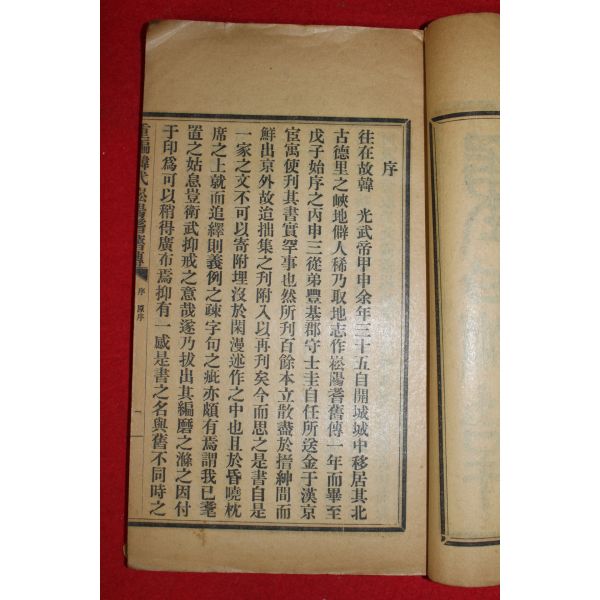 序
往在故韓　光武帝甲申余年三十五自開城城中移居其北
古德里之峽地僻人稀乃取地志作崧陽耆舊傳一年而畢至
戊子始序之丙申三從弟豐基郡守士圭自任所送金于漢京
宦寓使刋其書實罕事也然所刋百餘本立散盡於搢紳間而
鮮出京外故追拙集之刋附入以再刋矣今而思之是書自是
一家之文不可以寄附埋沒於閑漫述作之中也且於昏曉枕
席之上就而追繹則義例之疎字句之疵亦頗有焉謂我已耄
置之姑息豈衛武抑戒之意哉遂乃拔出其編磨之滌之因付
于印爲可以稍得廣布焉抑有一感是書之名與舊不同時之
重編韓代崧陽耆舊傳　序　原序　一